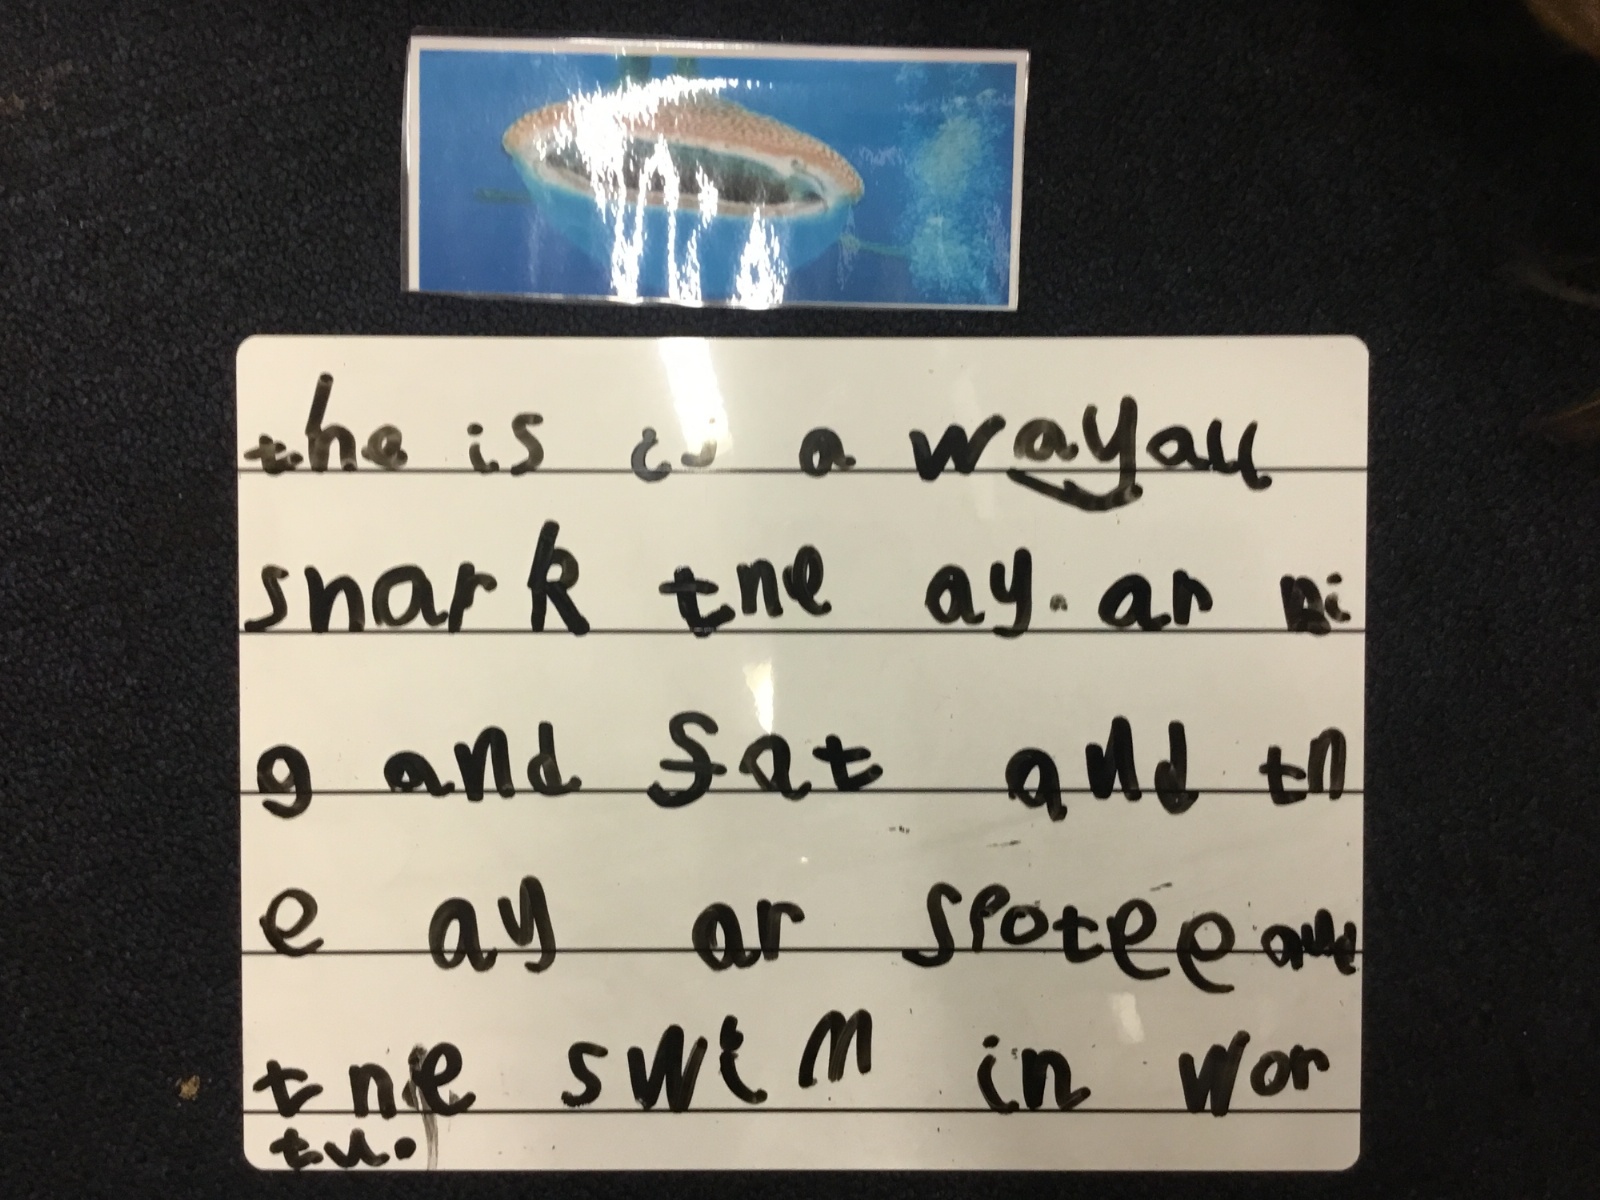 the is is a wayall
shark the ay. ar bi
g and fat and th
e ay ar spotee and
the swim in wor
tu.